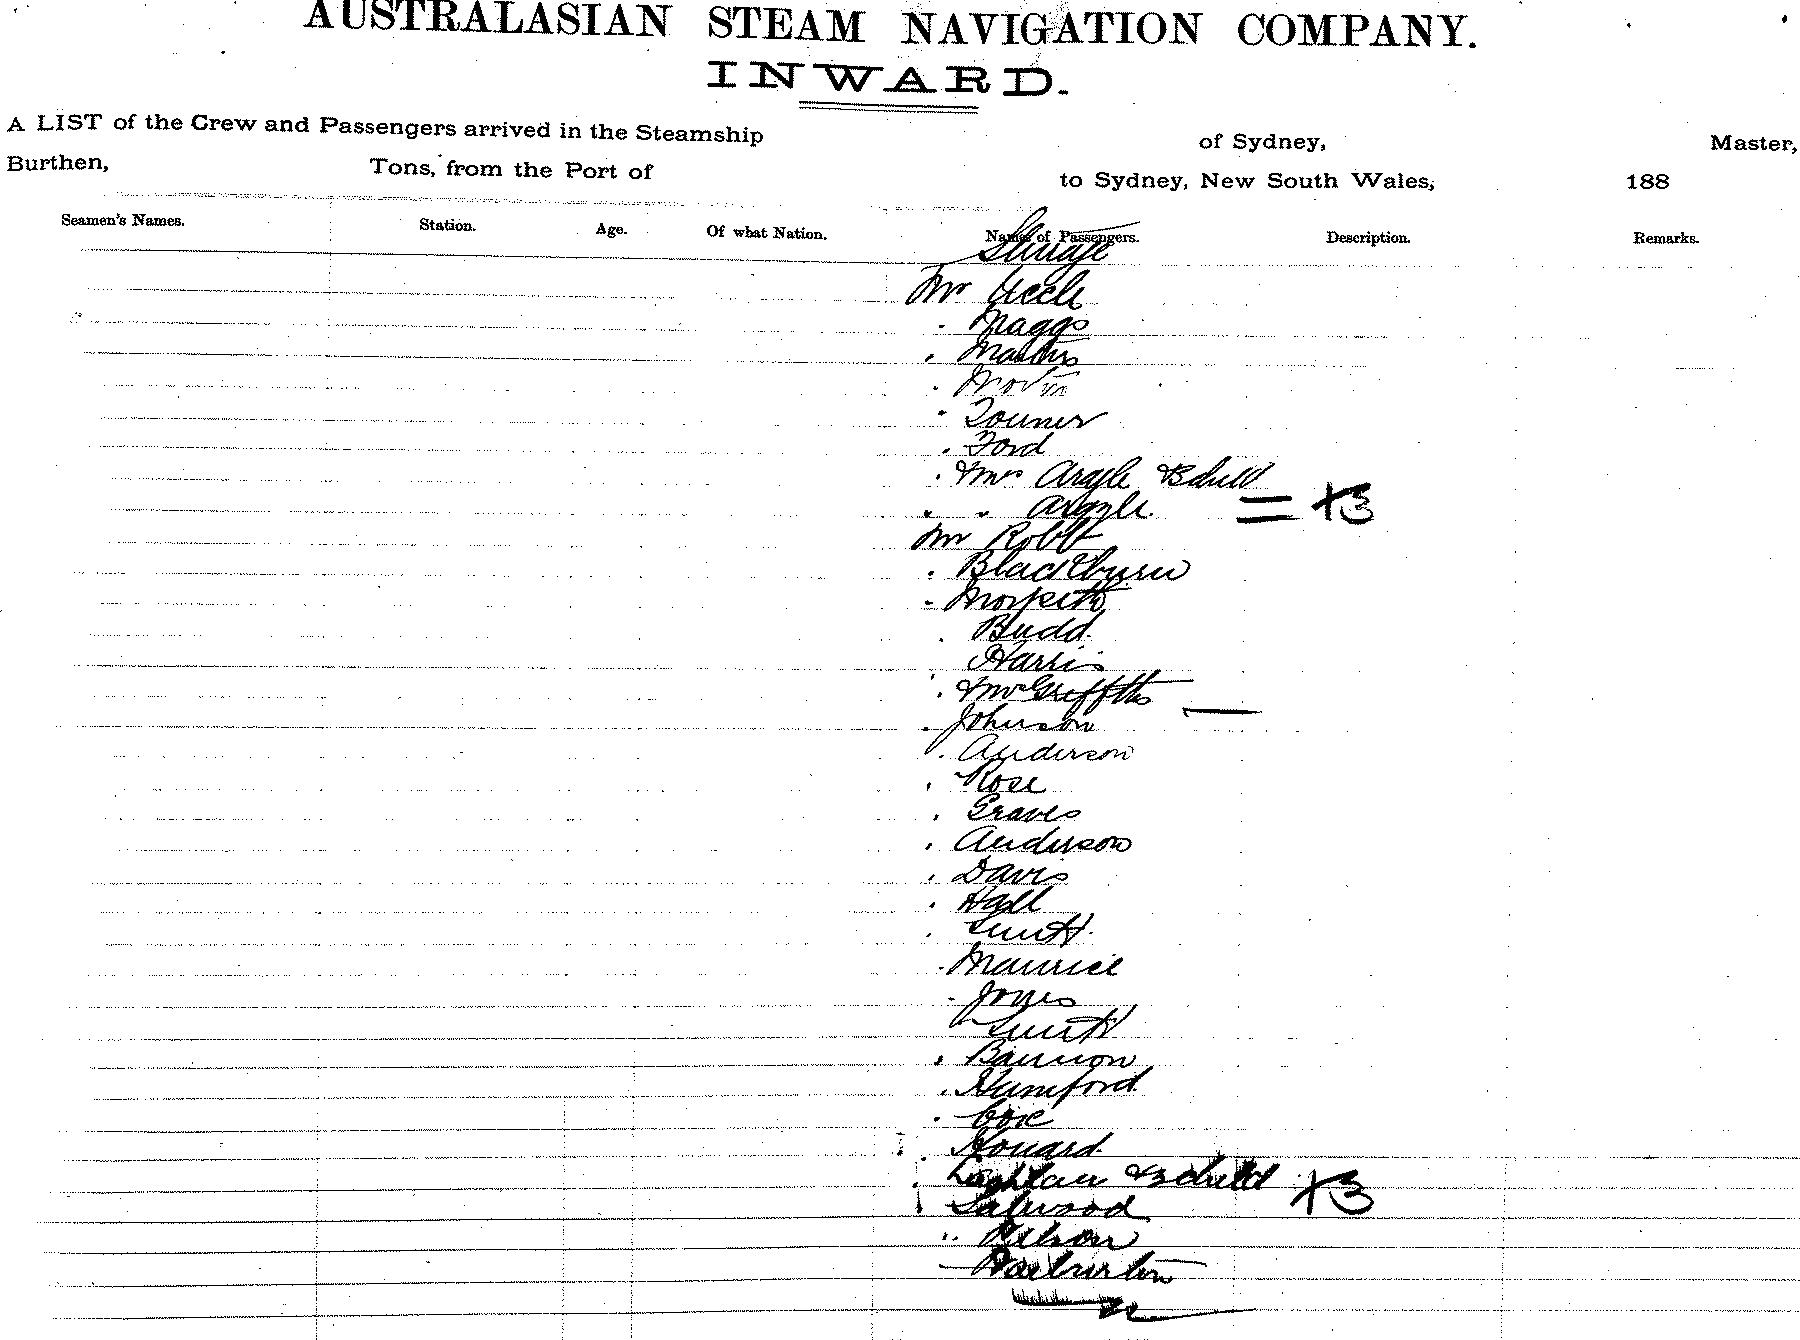 AUSTRALASIAN STEAM NAVIGATION COMPANY.
INWARD.
A LIST of the Crew and Passengers arrived in the Steamship of Sydney, Master,
Burthen, Tons, from the Port of to Sydney, New South Wales, 188
Seamen's Names. Station. Age. Of what Nation. Names of Passengers. Description. Remarks.
Steerage
Mr
" Maggs
" Martin
" Ford
" & Mrs Argyle & 3 child
" " Argyle. = +3
Mr Robb
" Blackburn
" Morpeth
" Budd
Harris
" & Mrs Griffths —
" Johnson
" Anderson
" Rose
" Graves
" Anderson
" Davis
" Hall
" Smith
" Maurice
" Jones
" Smith
" Bannon
" Humford
" Cox
" Howard
& 3 child +3
" Wilson